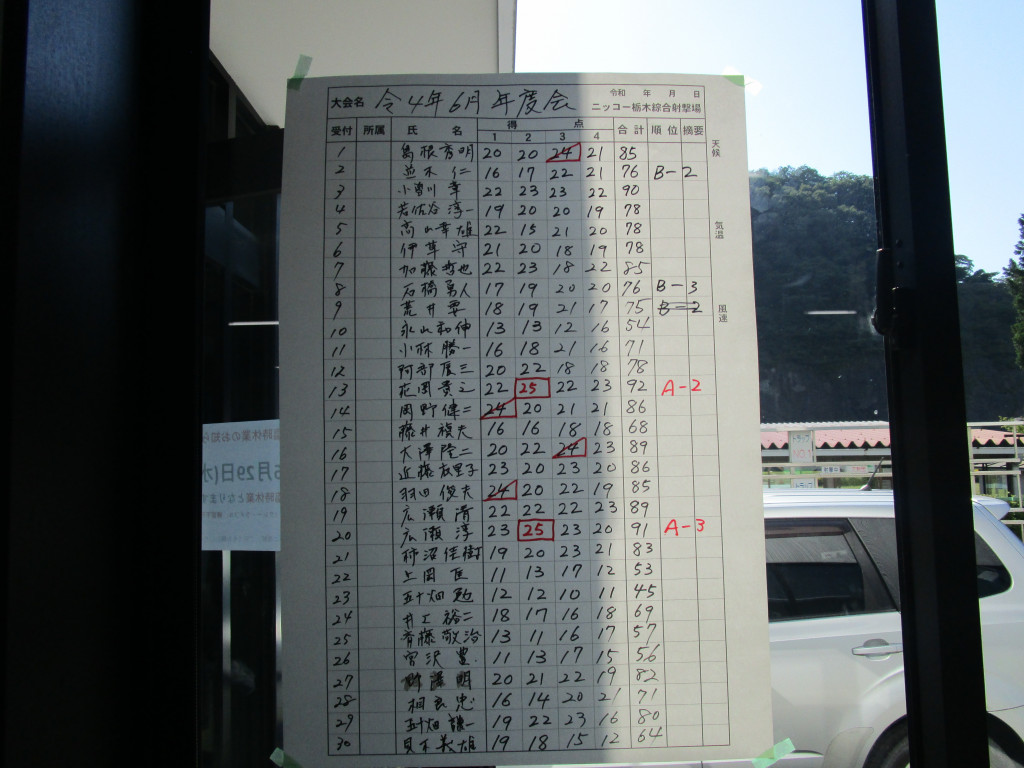 令和 年 月 日
大会名 令4年6月 年度会 ニッコー栃木綜合射撃場
受付 所属 氏 名 得 点 合計 順位 摘要
1 2 3 4
天候
気温
風速
1 島根秀明 20 20 24 21 85
2 並木 仁 16 17 22 21 76 B-2
3 小曽川 幸 22 23 23 22 90
4 若佐谷 淳一 19 20 20 19 78
5 高山幸雄 22 15 21 20 78
6 伊草 守 21 20 18 19 78
7 加藤哲也 22 23 18 22 85
8 石橋勇人 17 19 20 20 76 B-3
9 荒井要 18 19 21 17 75 B-2
10 永山和伸 13 13 12 16 54
11 小林勝一 16 18 21 16 71
12 阿部慶三 20 22 18 18 78
13 花岡貴之 22 25 22 23 92 A-2
14 岡野健二 24 20 21 21 86
15 藤井 夫 16 16 18 18 68
16 大澤陸二 20 22 24 23 89
17 近藤 里子 23 20 23 20 86
18 羽田俊夫 24 20 22 19 85
19 広瀬清 22 22 22 23 89
20 広瀬淳 23 25 23 20 91 A-3
21 柿沼佳樹 19 20 23 21 83
22 上岡 11 13 17 12 53
23 五十畑 勉 12 12 10 11 45
24 井上裕二 18 17 16 18 69
25 斉藤敬治 13 11 16 17 57
26 宮沢豊 11 13 17 15 56
27 明 20 21 22 19 82
28 相良忠 16 14 20 21 71
29 五十畑謙一 19 22 23 16 80
30 貝木義雄 19 18 15 12 64
臨時休業のお知ら
6月29日(水
臨時休業となります